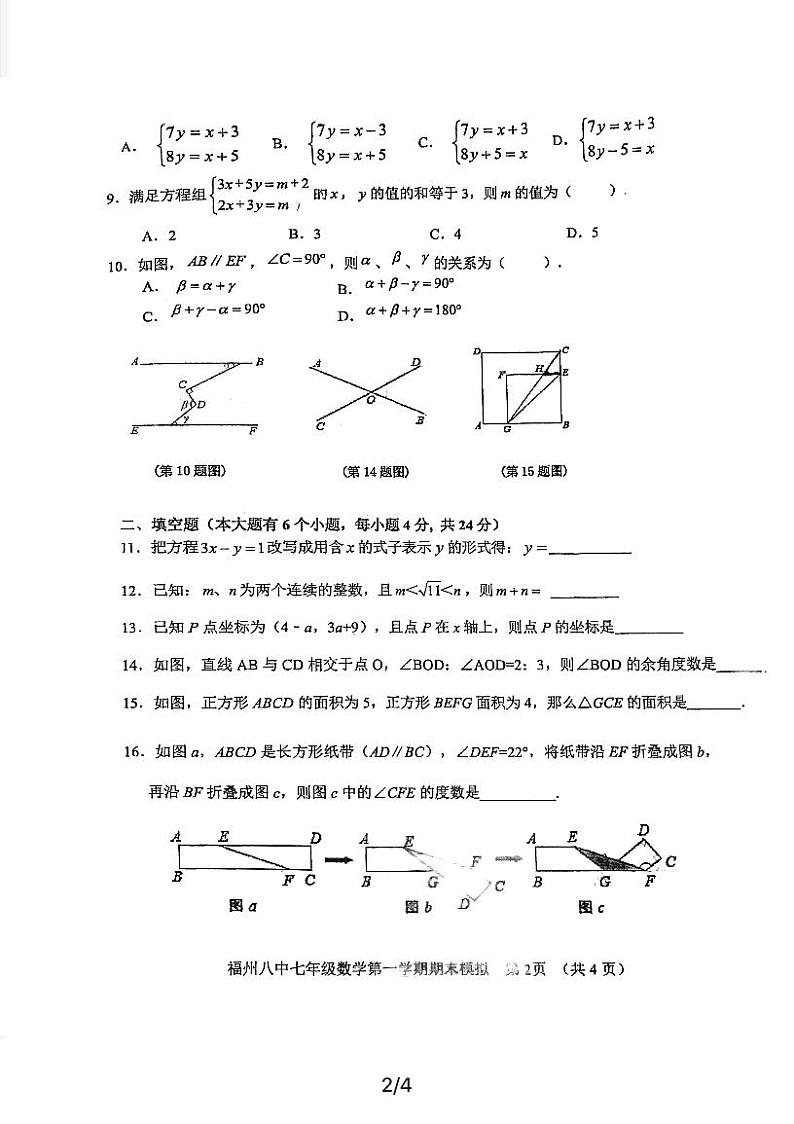 A. {7y = x+3 8y = x+5 B. {7y = x−3 8y = x+5 C. {7y = x+3 8y+5 = x D. {7y = x+3 8y−5 = x
9. 满足方程组{3x+5y=m+2 2x+3y=m 的x，y的值的和等于3，则m的值为（ ）.
A. 2 B. 3 C. 4 D. 5
10. 如图，AB∥EF，∠C=90°，则α、β、γ的关系为（ ）.
A. β=α+γ B. α+β−γ=90°
C. β+γ−α=90° D. α+β+γ=180°
A B C β D γ E F
A D O C B
D C F H E A G B
(第10题图) (第14题图) (第15题图)
二、填空题（本大题有6个小题，每小题4分, 共24分）
11. 把方程3x−y=1改写成用含x的式子表示y的形式得：y=
12. 已知：m、n为两个连续的整数，且m<√11<n，则m+n=
13. 已知P点坐标为（4﹣a，3a+9），且点P在x轴上，则点P的坐标是
14. 如图，直线AB与CD相交于点O，∠BOD：∠AOD=2：3，则∠BOD的余角度数是
15. 如图，正方形ABCD的面积为5，正方形BEFG面积为4，那么△GCE的面积是.
16. 如图a，ABCD是长方形纸带（AD∥BC），∠DEF=22°，将纸带沿EF折叠成图b，
再沿BF折叠成图c，则图c中的∠CFE的度数是.
A E D B F C
A E F B G C D
A E D C B G F
图a 图b 图c
福州八中七年级数学第一学期期末模拟 第2页 （共4页）
2/4